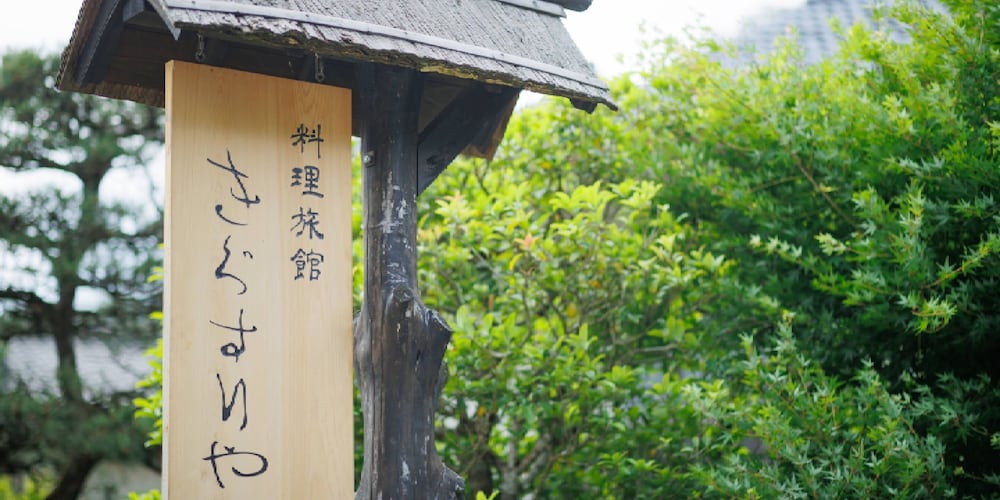 料理旅館
きぐすりや